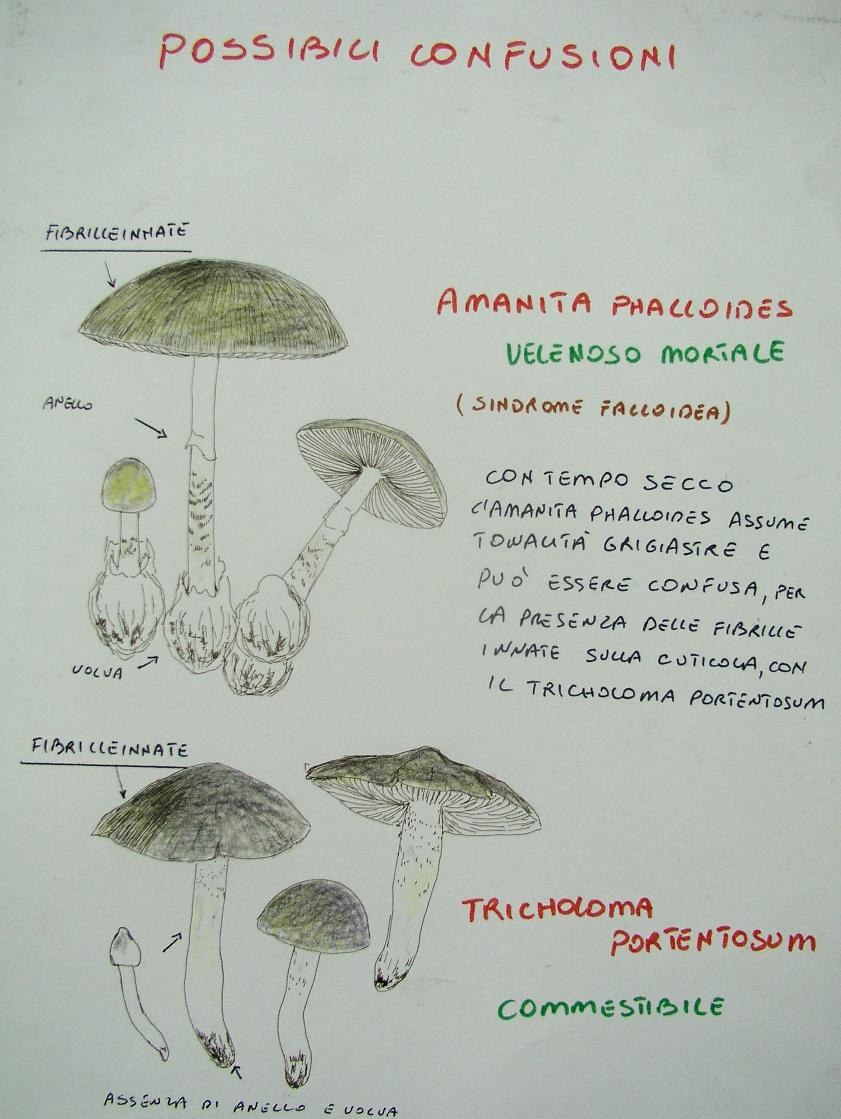 POSSIBILI CONFUSIONI
FIBRILLE INNATE
AMANITA PHALLOIDES
VELENOSO MORTALE
ANELLO
(SINDROME FALLOIDEA)
CON TEMPO SECCO
L'AMANITA PHALLOIDES ASSUME
TONALITÀ GRIGIASTRE E
PUÒ ESSERE CONFUSA, PER
LA PRESENZA DELLE FIBRILLE
INNATE SULLA CUTICOLA, CON
IL TRICHOLOMA PORTENTOSUM
VOLVA
FIBRILLE INNATE
TRICHOLOMA
PORTENTOSUM
COMMESTIBILE
ASSENZA DI ANELLO E VOLVA